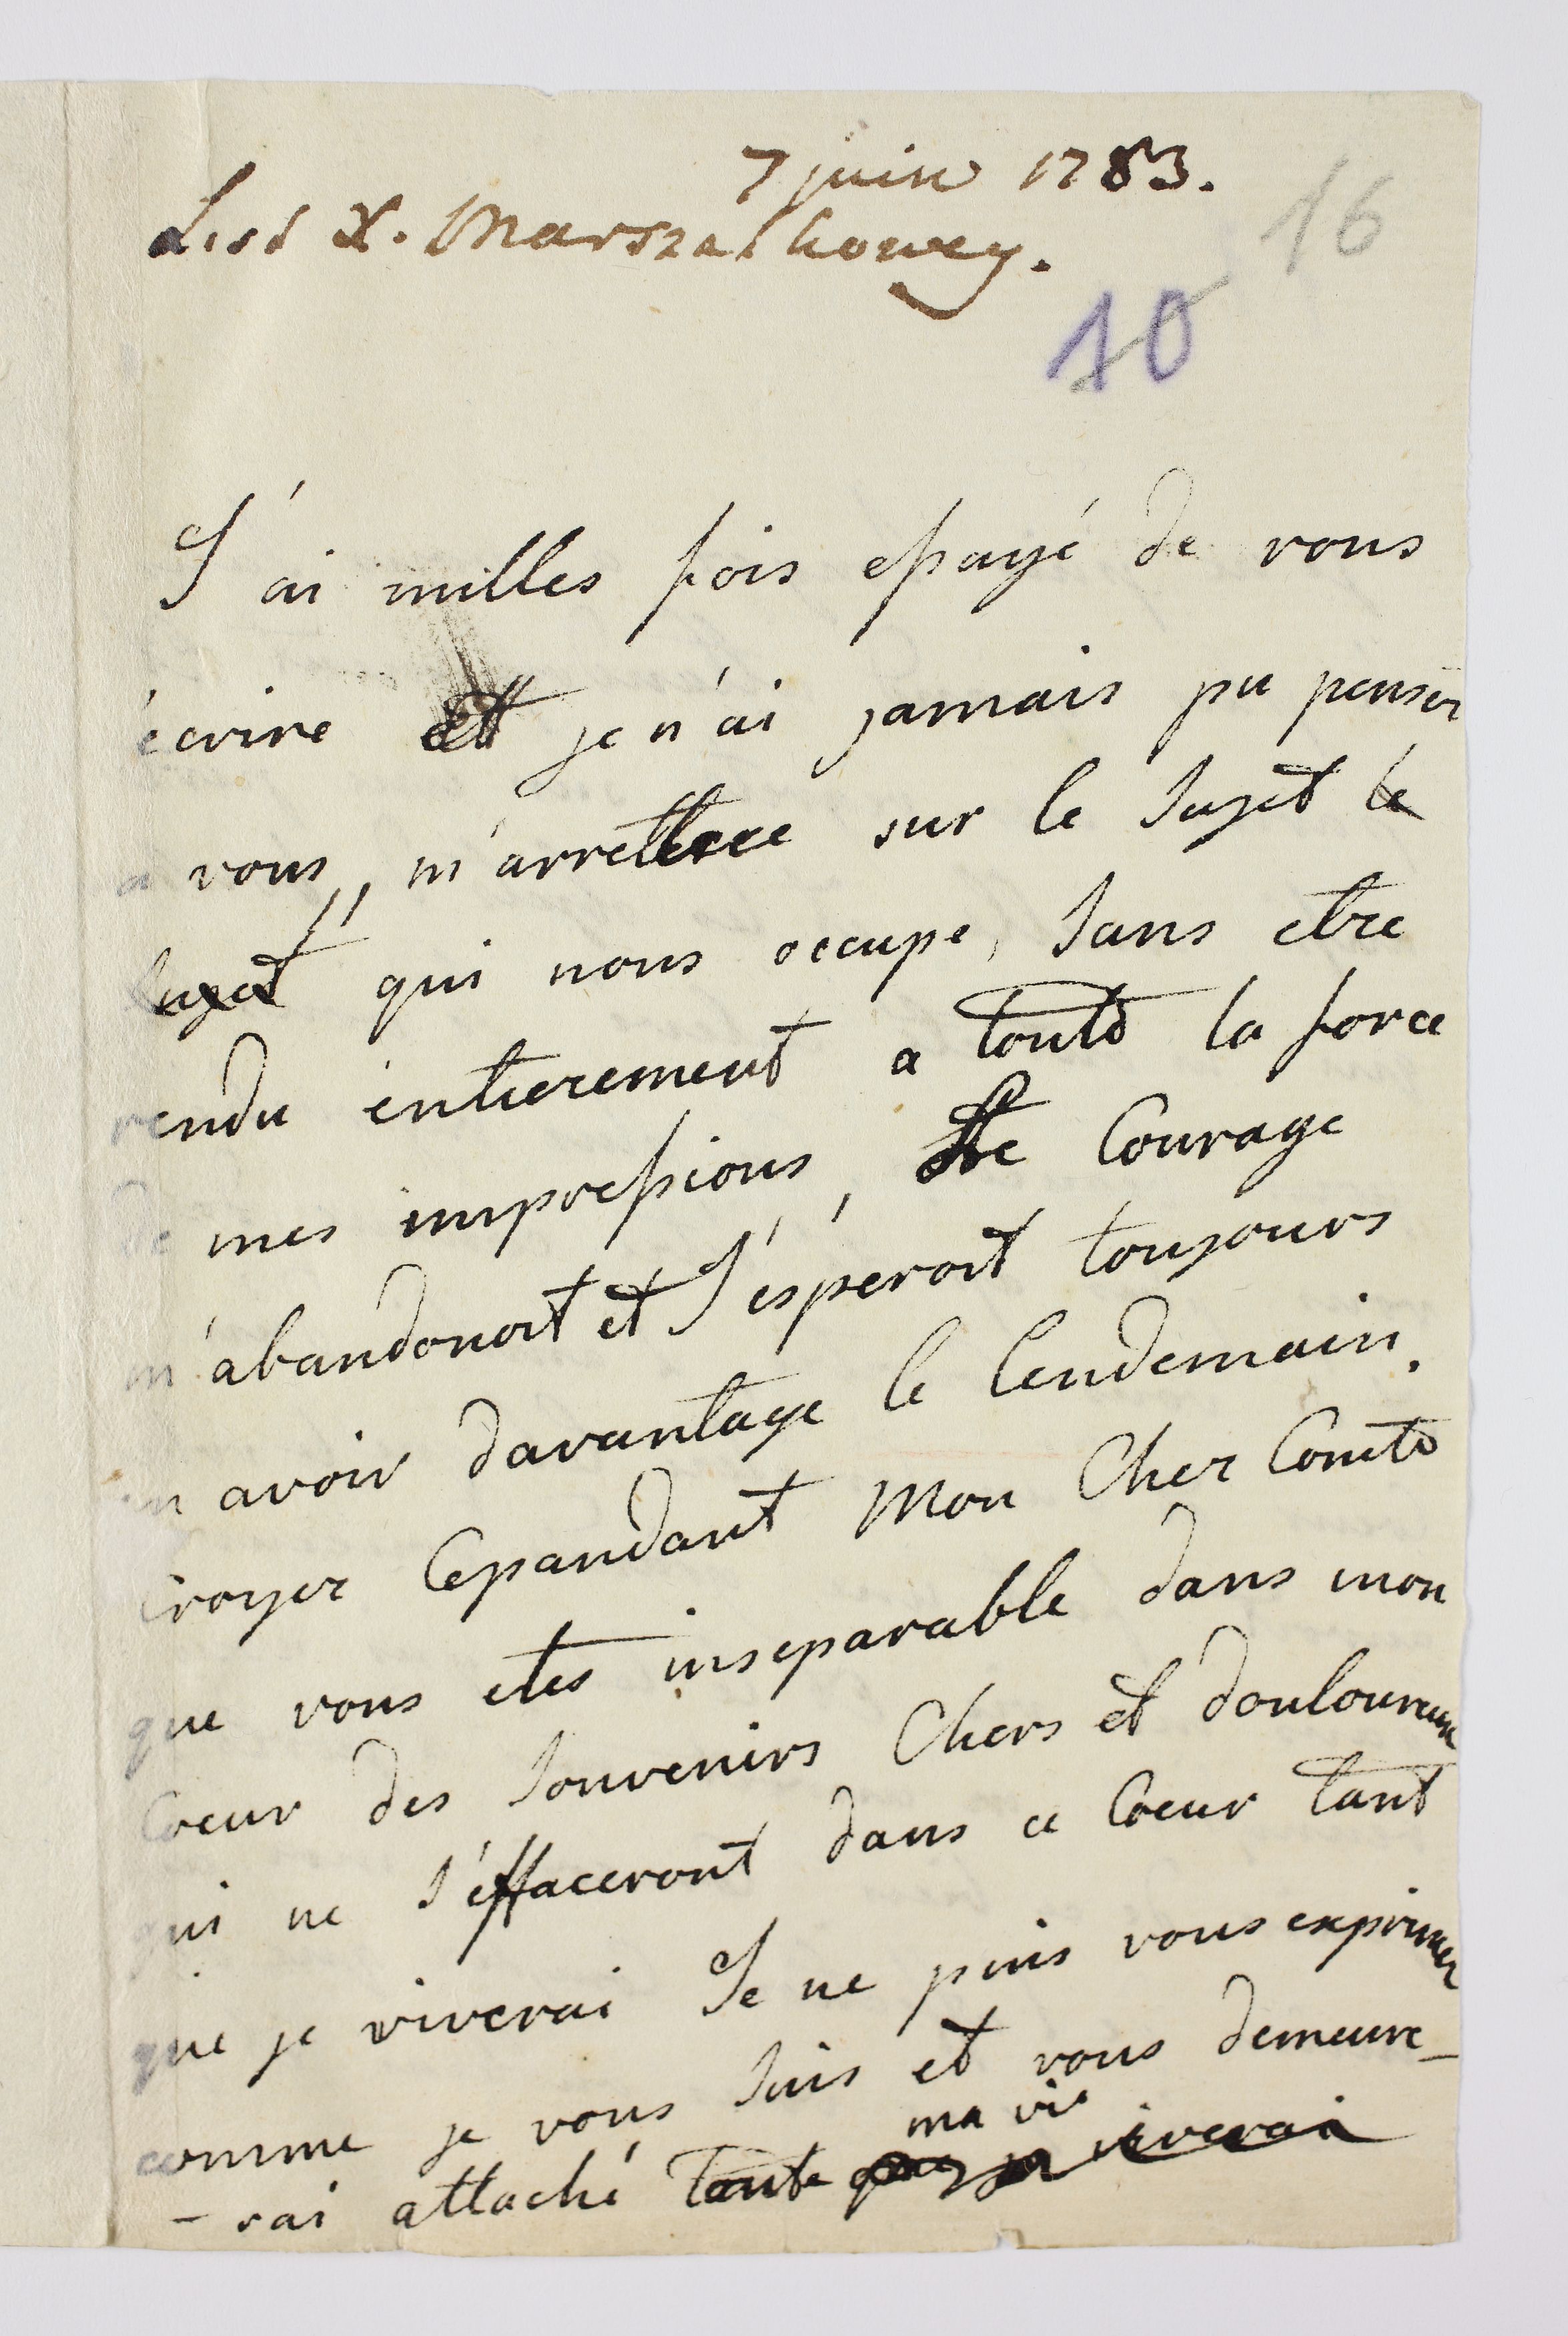 7 juin 1783.
16
List X. Marszałkowey.
10
J'ai milles fois essayé de vous
écrire et je n'ai jamais pu penser
a vous, m'arretter sur le sujet le
sujet qui nous occupe, sans etre
rendu entierement a toute la force
de mes impressions, le courage
m'abandonoit et J'esperoit toujours
en avoir davantage le lendemain.
croyez Cepandant mon Cher Comte
que vous etes inseparable dans mon
Coeur des souvenirs Chers et douloureux
qui ne s'éffaceront dans ce Coeur tant
que je viverai Je ne puis vous exprimer
comme je vous suis et vous demeure-
ma vie
-rai attaché toute que je viverai